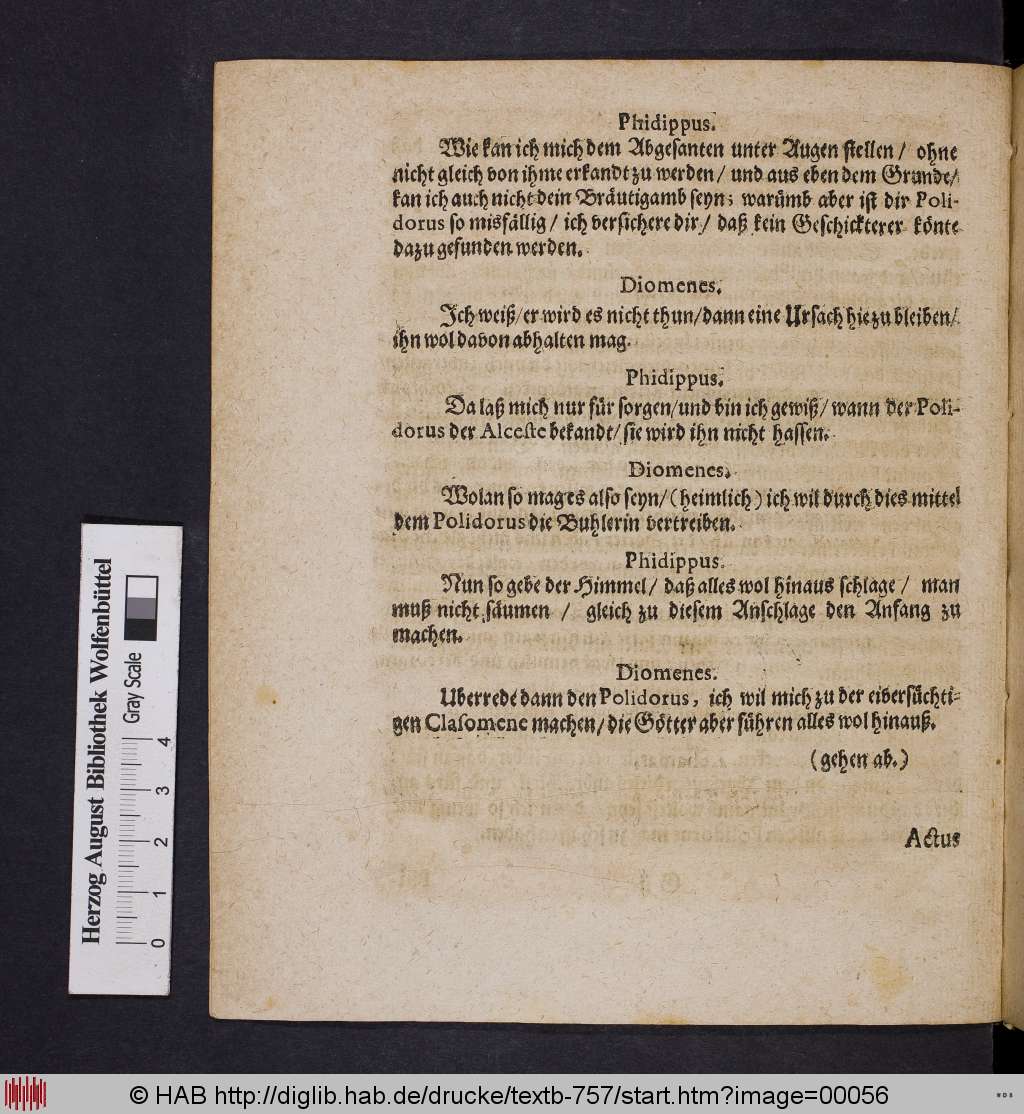 Phidippus.
Wie kan ich mich dem Abgesanten unter Augen stellen / ohne
nicht gleich von ihme erkandt zu werden / und aus eben dem Grunde /
kan ich auch nicht dein Bräutigamb seyn; warümb aber ist dir Poli-
dorus so misfällig / ich versichere dir / daß kein Geschickterer könte
dazu gefunden werden.
Diomenes.
Ich weiß / er wird es nicht thun / dann eine Ursach hiezu bleiben /
ihn wol davon abhalten mag.
Phidippus.
Da laß mich nur für sorgen / und bin ich gewiß / wann der Poli-
dorus der Alceste bekandt / sie wird ihn nicht hassen.
Diomenes.
Wolan so mag es also seyn / (heimlich) ich wil durch dies mittel
dem Polidorus die Buhlerin vertreiben.
Phidippus.
Nun so gebe der Himmel / daß alles wol hinaus schlage / man
muß nicht säumen / gleich zu diesem Anschlage den Anfang zu
machen.
Diomenes.
Uberrede dann den Polidorus, ich wil mich zu der eibersüchti-
gen Clasomene machen / die Götter aber führen alles wol hinauß.
(gehen ab.)
Actus
Herzog August Bibliothek Wolfenbüttel
Gray Scale
0 1 2 3 4
© HAB http://diglib.hab.de/drucke/textb-757/start.htm?image=00056